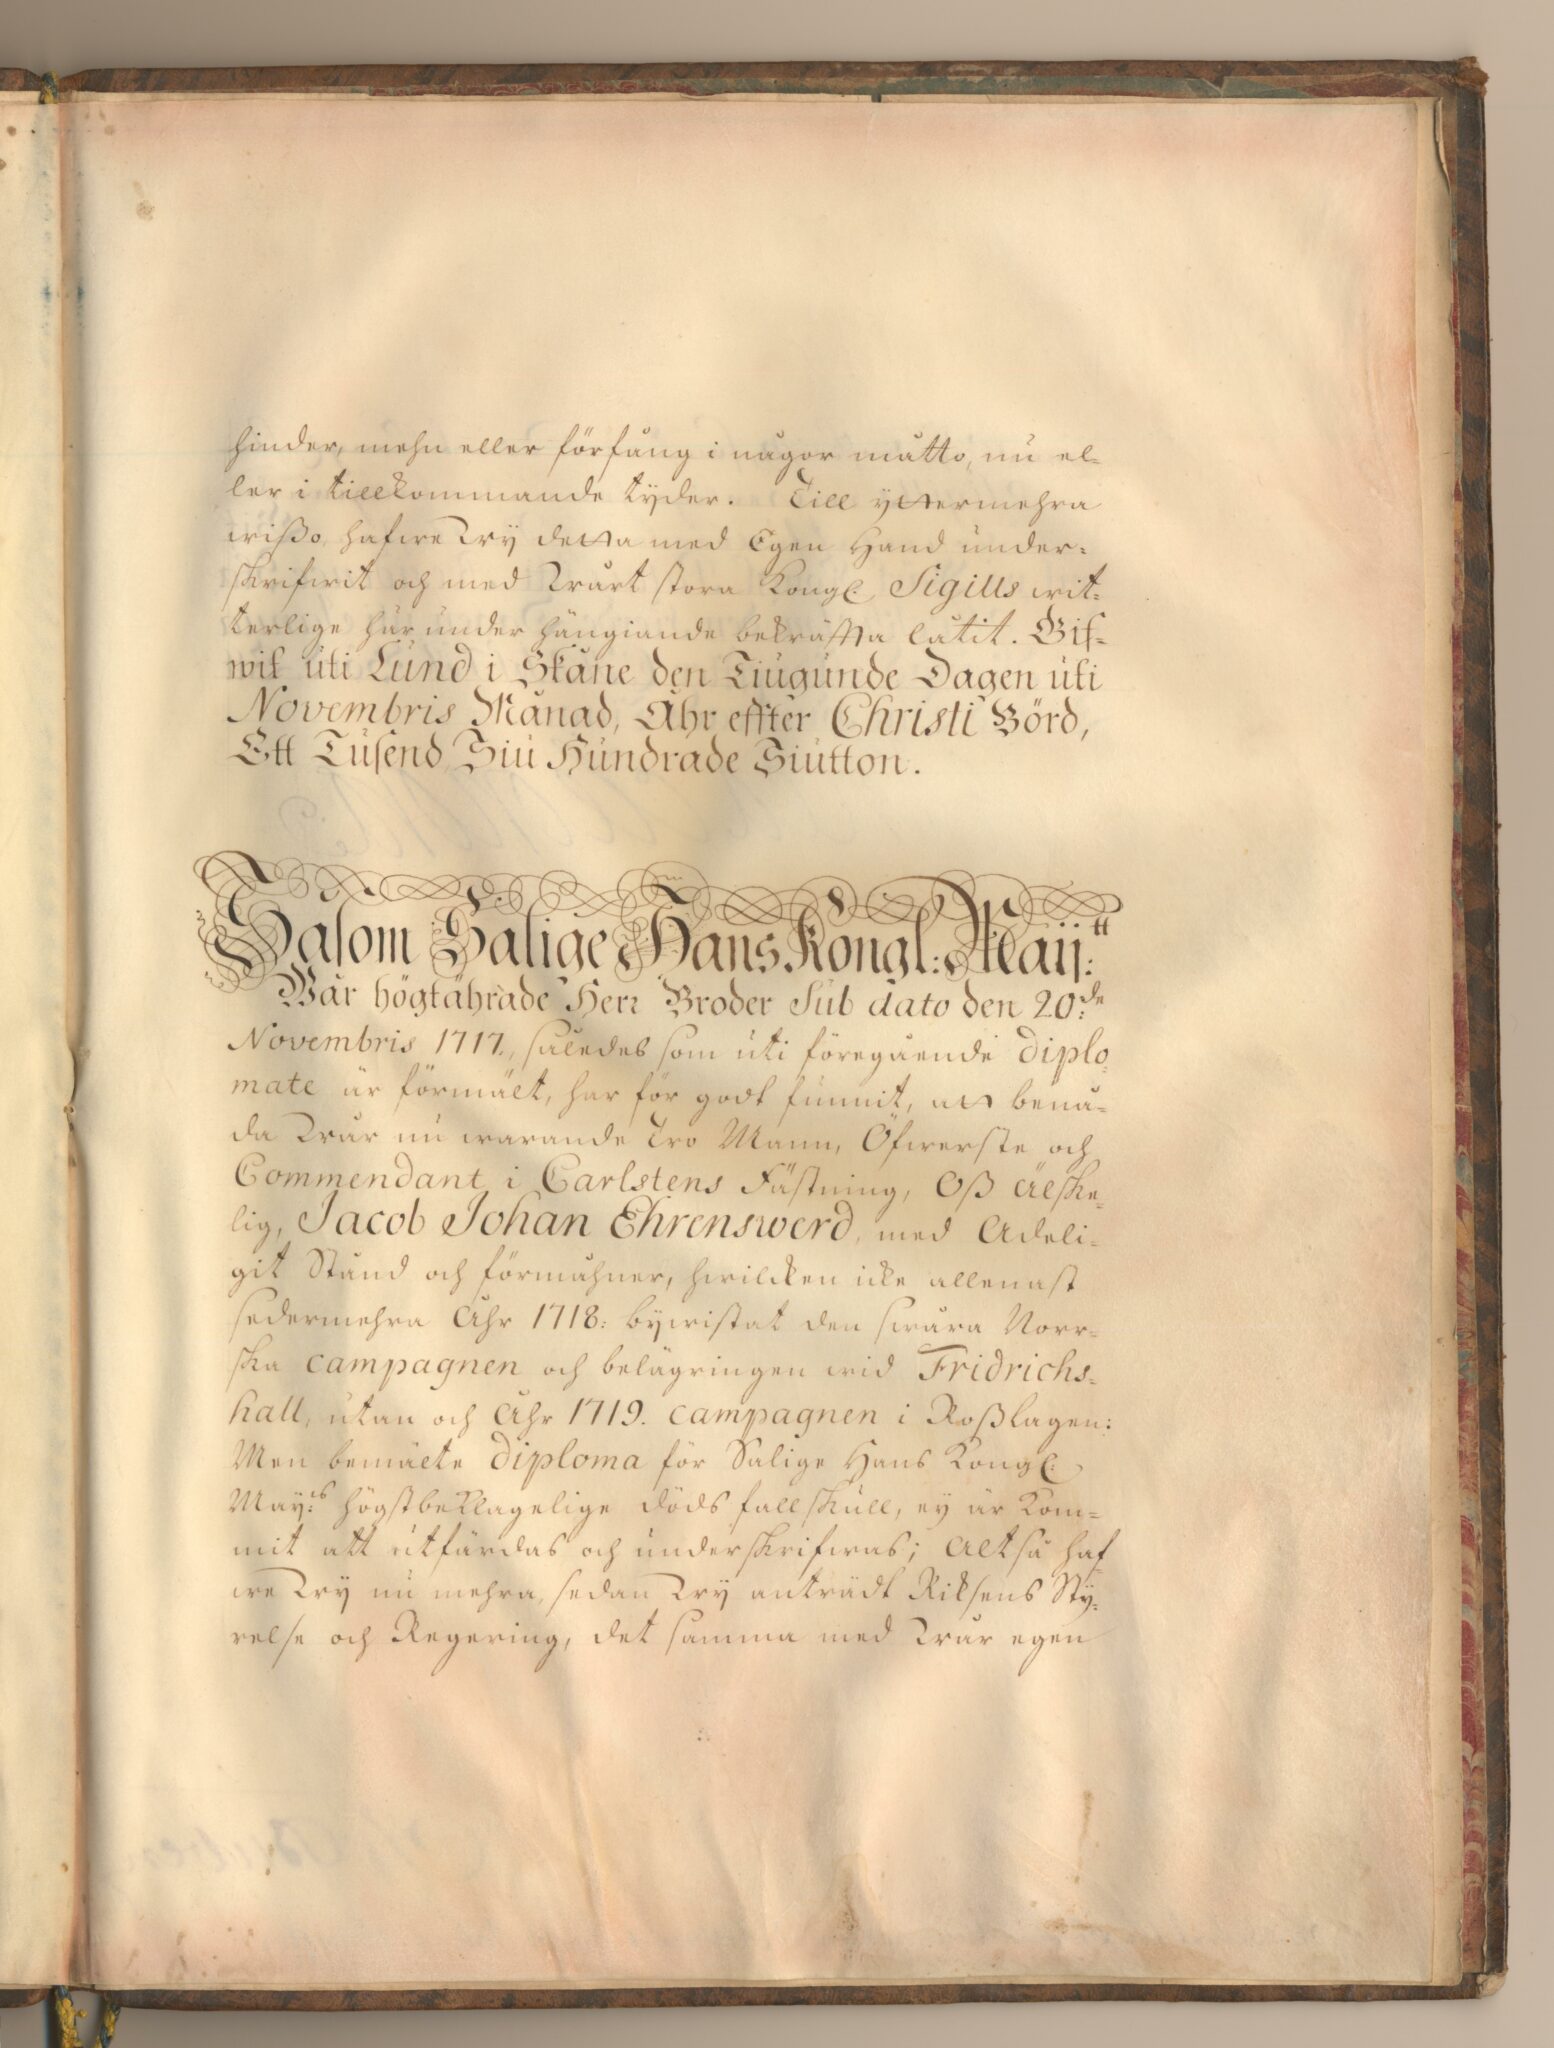 hinder, mehn eller förfång i någor måtto, nu el-
ler i tillkommande tyder. Till yttermehra
wißo, hafwe Wy detta med Egen Hand under-
skrifwit och med Wårt stora Kongl. Sigills wit-
terlige här under hängiande bekräffta låtit. Gif-
wit uti Lund i Skåne den Tiugunde Dagen uti
Novembris Månad, Åhr effter Christi Börd,
Ett Tusend Siu Hundrade Siutton.
Såsom Salige Hans Kongl: Maij:tt
Wår högtährade Herr Broder Sub dato den 20:de
Novembris 1717., således som uti föregående diplo-
mate är förmält, har för godt funnit, att benå-
da Wår nu warande Tro Mann, Öfwerste och
Commendant i Carlstens Fästning, Oß Älske-
lig, Jacob Johan Ehrenswerd, med Adeli-
git Stånd och förmåhner, hwilcken icke allenast
sedermehra Åhr 1718: bywistat den swåra Norr-
ska campagnen och belägringen wid Fridrichs-
hall, utan och Åhr 1719. campagnen i Roßlagen:
Men bemälte diploma för Salige Hans Kongl.
May:ts högstbeklagelige dödsfall skull, ey är kom-
mit att utfärdas och underskrifwas; Altså haf-
we Wy nu mehra, sedan Wy anträdt Riksens Sty-
relse och Regering, det samma med Wår egen